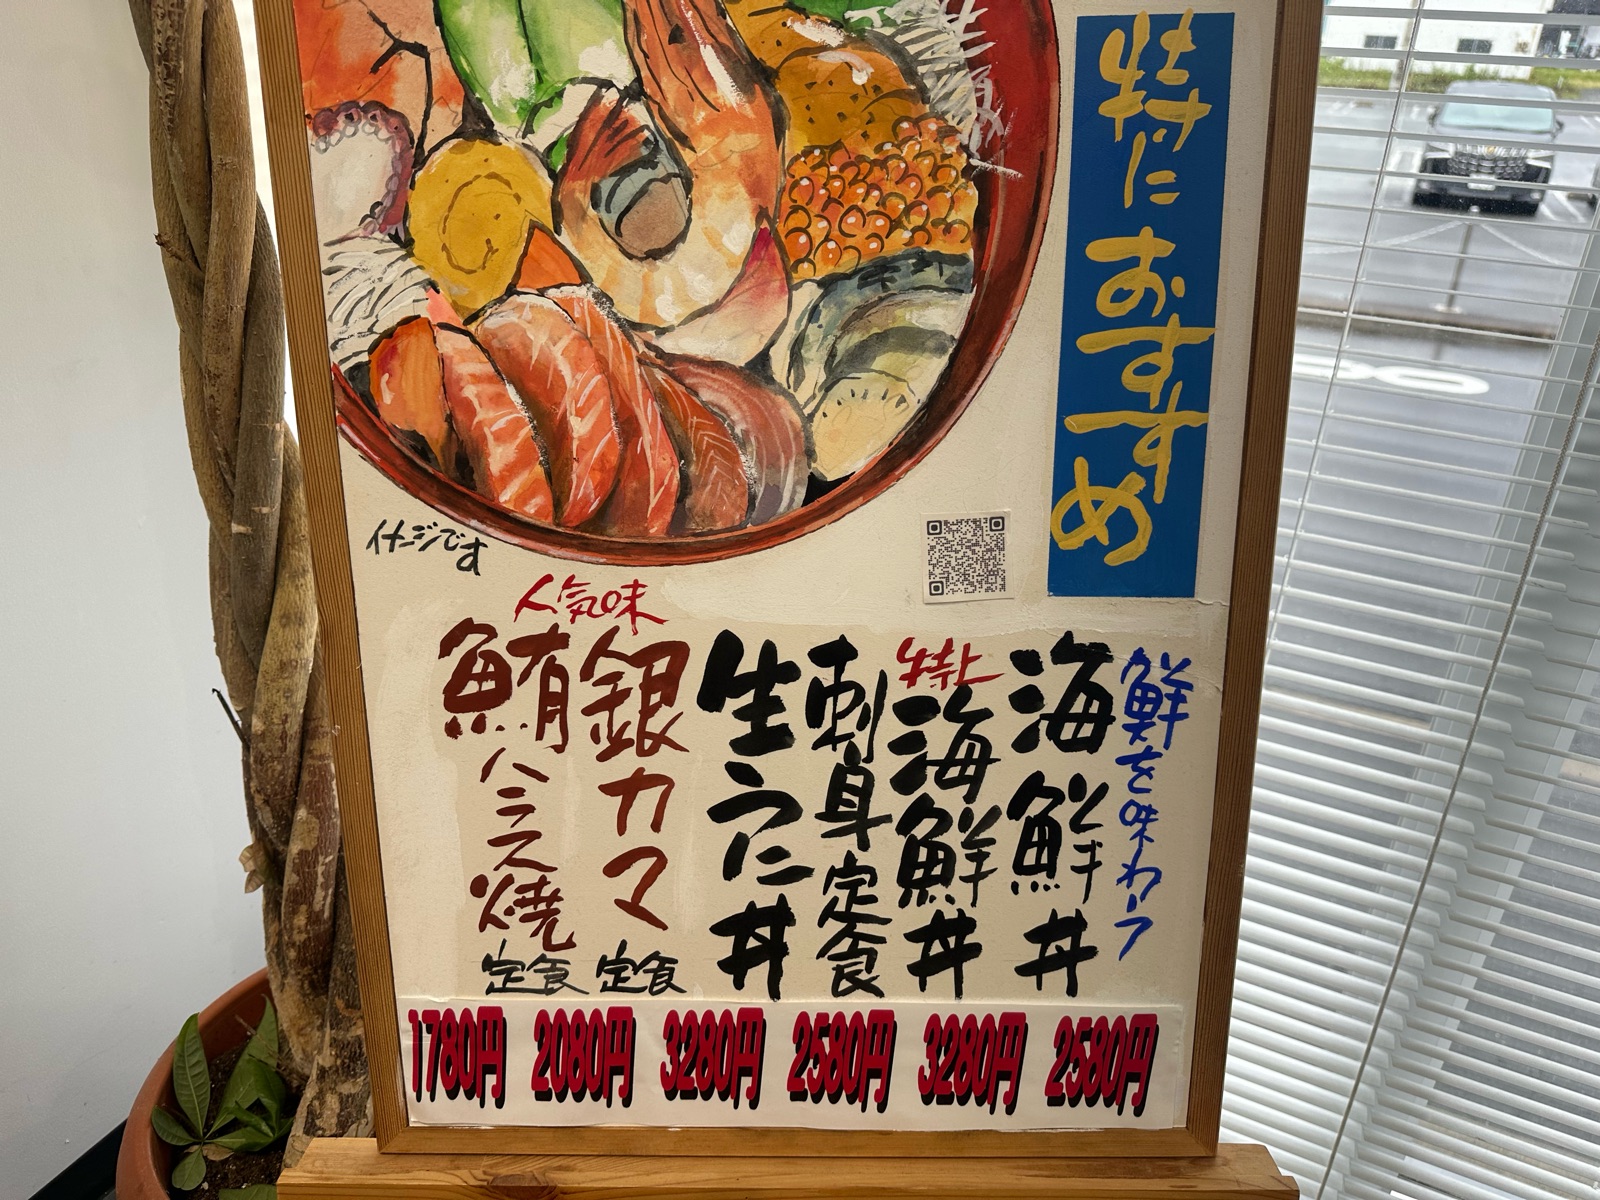 特におすすめ
イメージです
鮮を味わう
海鮮丼
特上
海鮮丼
刺身定食
生うに丼
人気味
銀カマ定食
鮪ハラス焼定食
1780円 2080円 3280円 2580円 3280円 2580円